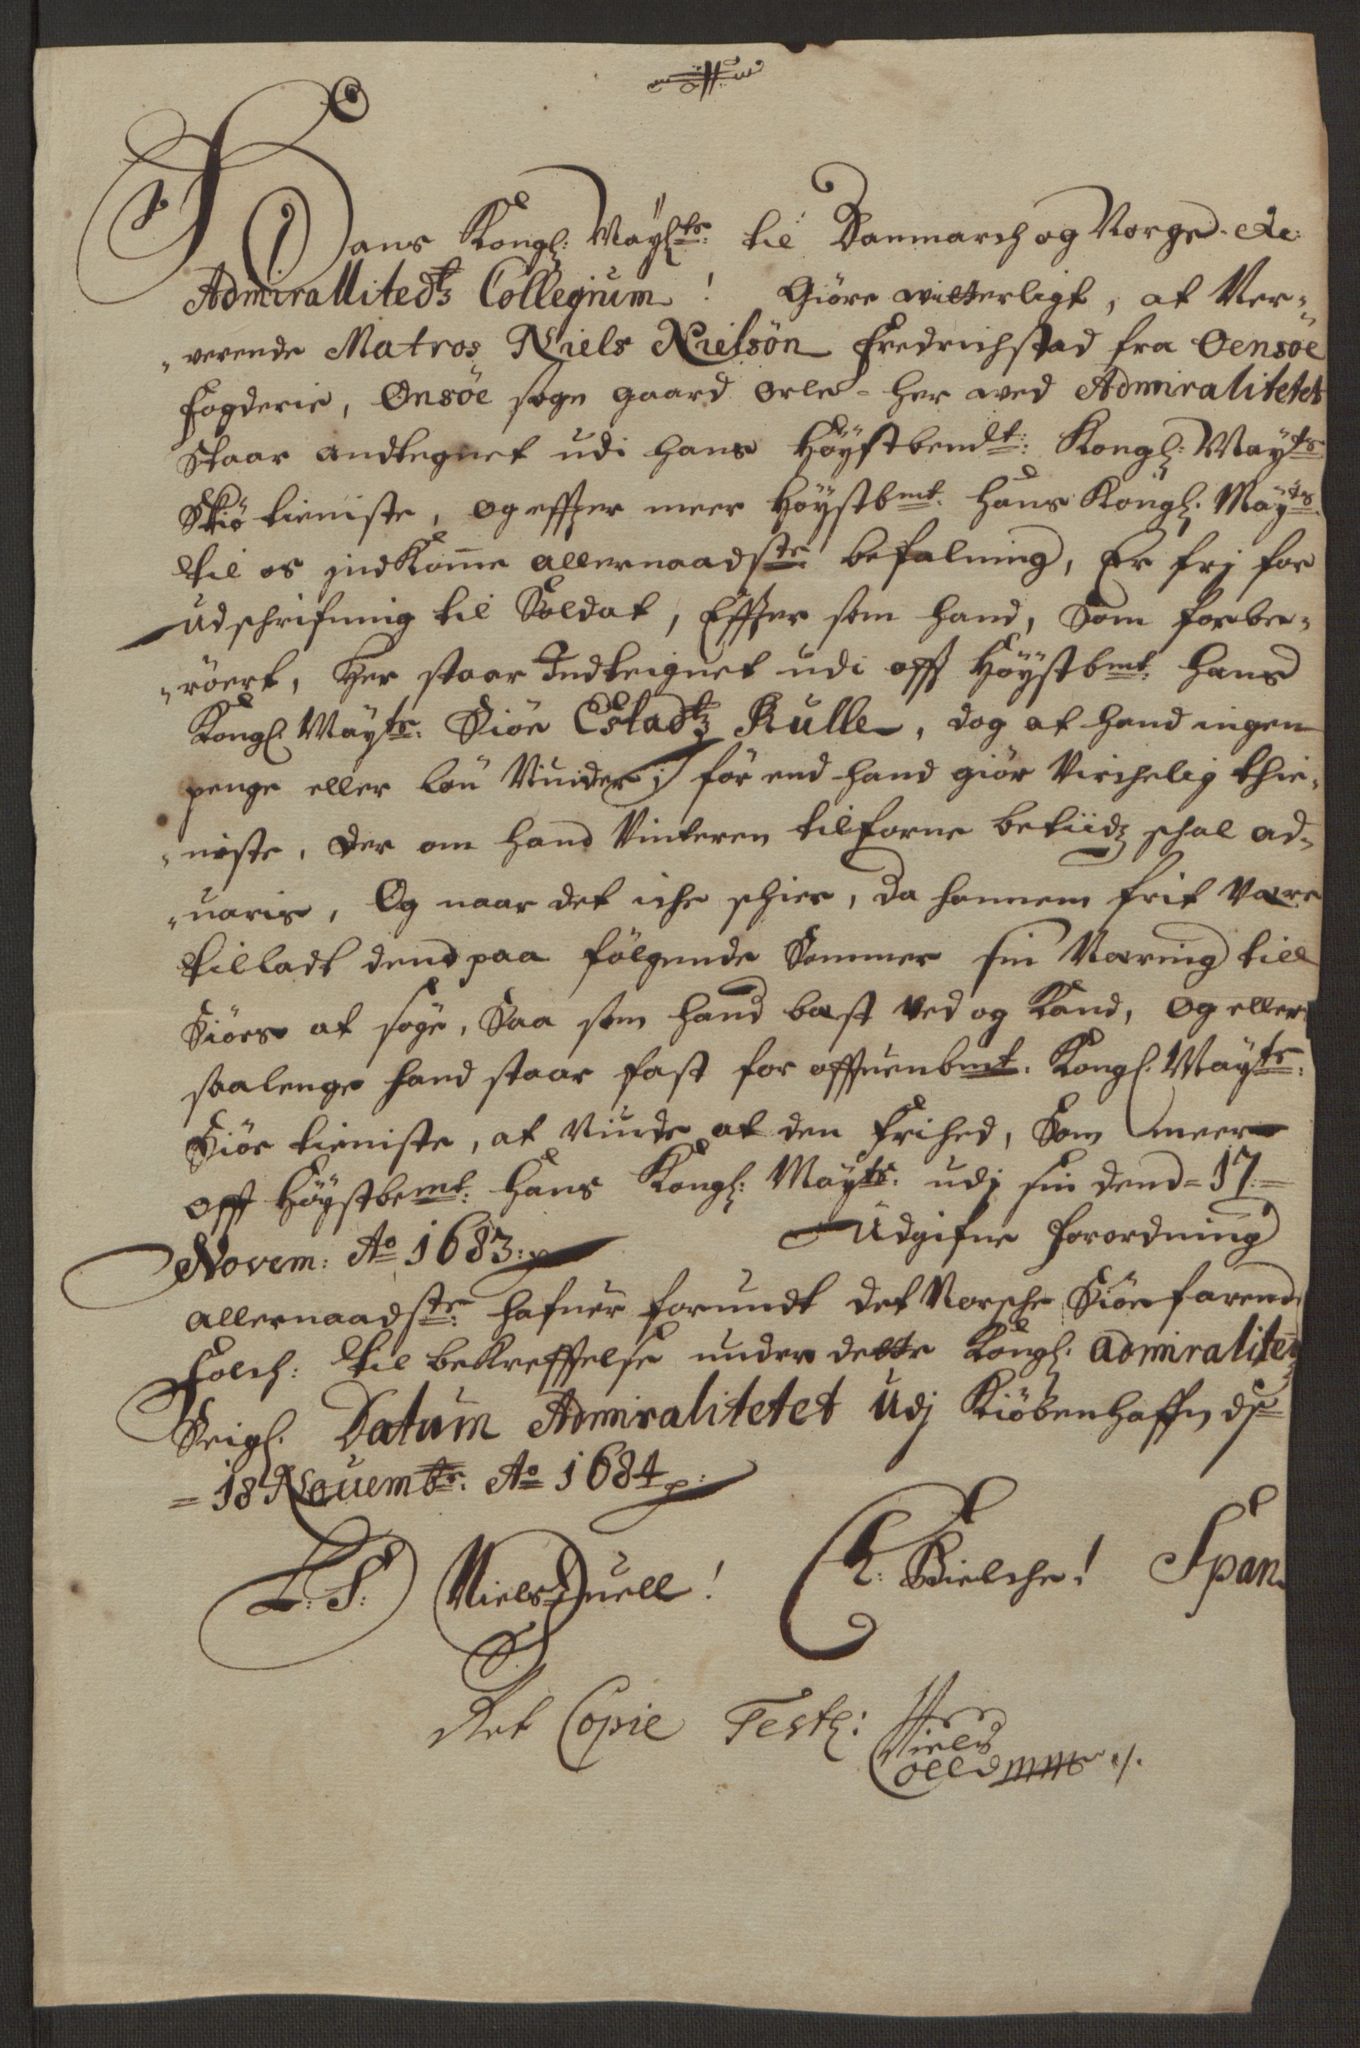 Hans Kongl: Mayl:ts: til Danmarch og Norge. &c:
Admirallitedtz Collegium! Giöre witterligt, at Nær-
"verende Matros Niels Nielsön Fredrichstad fra Oensöe
Fogderie, Onsöe Sogn gaard Orle - her wed Admiralitetet
Staar andtegnet udi hans Höystbemdt: Kongl: Mayts:
Siö tieniste, og effter meer Höystbmt: hans Kongl: Mayts:
til os indKomne allernaadste befalning, Er frj for
udschrifning til Soldat, Effter som hand, Som forbe-
"röert, Her staar Indteignet udi off Höystbmt: hans
Kongl: Mayts: Siöe Estadtz Rulle, dog at hand ingen
penge eller lön Niuder, för end hand giör Virchelig thie-
"niste, der om hand Vinteren tilforne betiidz schal ad-
"uaris, Og naar det iche schier, da hannem frit være
tilladt dend paa fölgende Sommer sin Næring till
Siöes at söge, Saa som hand bæst ved og Kand, og ellers
saalenge hand staar fast for offuenbmt: Kongl: Mayts:
Siöe tieniste, at Niude at den Frihed, Som meer
off Höystbemt: Hans Kongl: Mayts: udj sin dend = 17: =
Novem: Ao 1683: Udgifne Forordning
allernaadste hafuer forundt det Norsche Siöefarende
Folch: til bekrefftelse under dette Kongl: Admiralitetz
Seigl. Datum Admiralitetet Udj Kiöbenhaffn ds=
= 18 Nouembr: Ao 1684
L: S: Niels Juell! Ch: Bielche! Span.
Ret Copie Test:
Niels